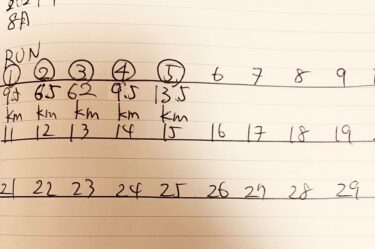 8月
RUN
① ② ③ ④ ⑤ 6 7 8 9
9.5 6.5 6.2 9.5 13.5
km km km km km
11 12 13 14 15 16 17 18 19
21 22 23 24 25 26 27 28 29